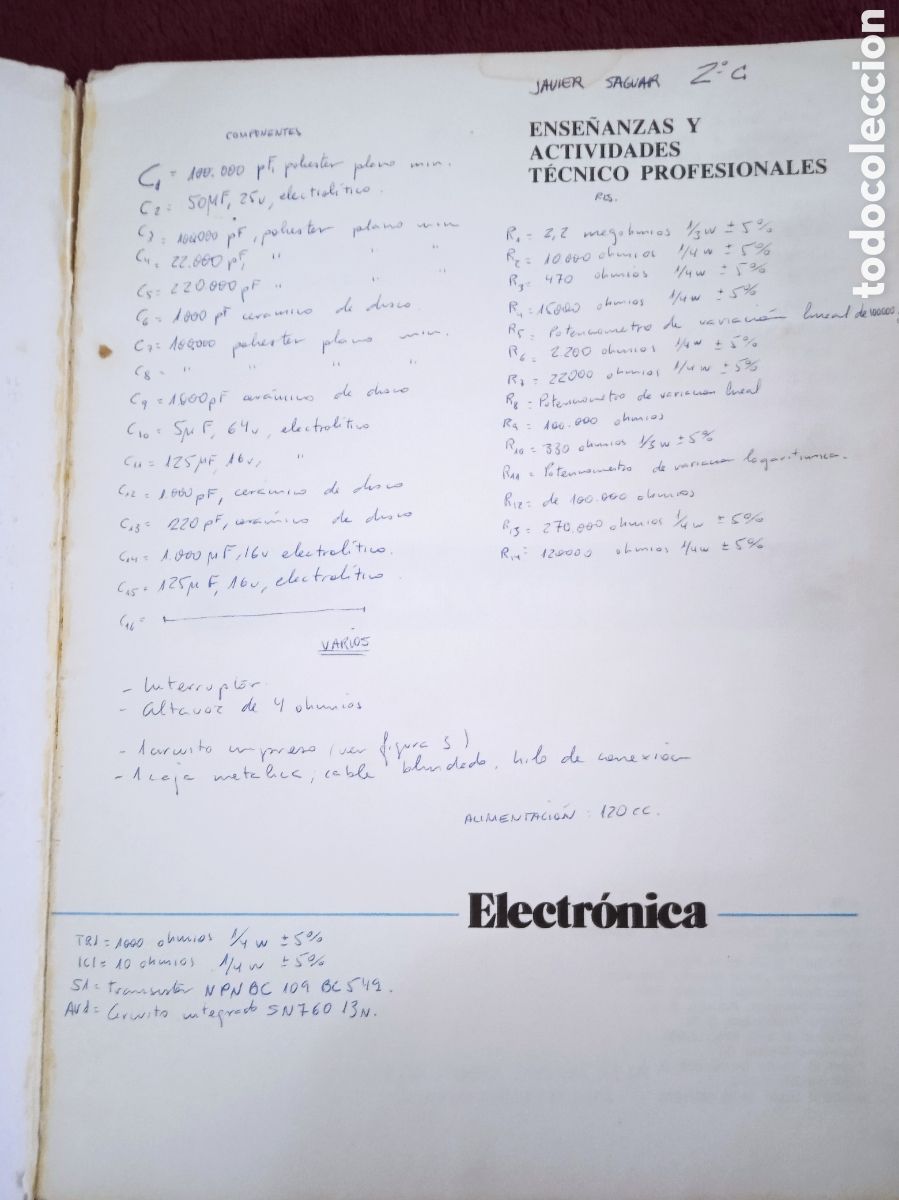 JAVIER SAGUAR 2º C
ENSEÑANZAS Y
ACTIVIDADES
TÉCNICO PROFESIONALES
COMPONENTES
C1 = 100.000 pF, poliester plano min.
C2 = 50µF, 25v, electrolítico.
C3 = 100000 pF, poliester plano min
C4 = 22.000 pF, " " "
C5 = 220000 pF " " "
C6 = 1000 pF ceramico de disco
C7 = 100000 poliester plano min.
C8 = " " " "
C9 = 1000pF cerámico de disco
C10 = 5µF, 64v, electrolítico
C11 = 125µF, 16v, "
C12 = 1000pF, ceramico de disco
C13 = 220 pF, cerámico de disco
C14 = 1.000 µF, 16v electrolítico.
C15 = 125µF, 16v, electrolítico.
C16 =
RES.
R1 = 2,2 megohmios 1/3w ± 5%
R2 = 10000 ohmios 1/4w ± 5%
R3 = 470 ohmios 1/4w ± 5%
R4 = 15000 ohmios 1/4w ± 5%
R5 = Potenciometro de variación lineal de 100000
R6 = 2.200 ohmios 1/4w ± 5%
R7 = 22000 ohmios 1/4w ± 5%
R8 = Potenciometro de variacion lineal
R9 = 100.000 ohmios
R10 = 330 ohmios 1/3w ± 5%
R11 = Potenciometro de variacion logaritmica.
R12 = de 100.000 ohmios
R13 = 270.000 ohmios 1/4w ± 5%
R14 = 120000 ohmios 1/4w ± 5%
VARIOS
- Interruptor.
- altavoz de 4 ohmios
- 1 circuito impreso (ver figura 3)
- 1 caja metalica, cable blindado, hilo de conexión
ALIMENTACIÓN : 120cc.
Electrónica
TR1 = 1000 ohmios 1/4w ± 5%
IC1 = 10 ohmios 1/4w ± 5%
S1 = transistor NPN BC 109 BC 549.
AV1 = Circuito integrado SN760 13N.
todocoleccion